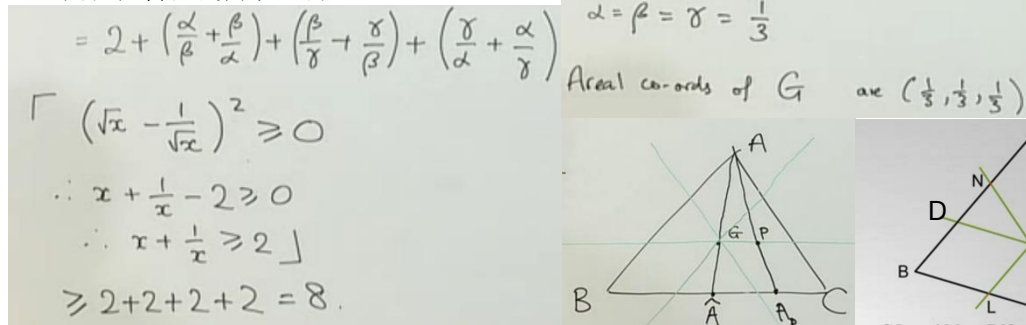 = 2 + (α/β + β/α) + (β/γ + γ/β) + (γ/α + α/γ)
(√x - 1/√x)² ⩾ 0
∴ x + 1/x - 2 ⩾ 0
∴ x + 1/x ⩾ 2
⩾ 2+2+2+2 = 8.
α = β = γ = 1/3
Areal co-ords of G are (1/3, 1/3, 1/3)
A
G P
B Â A_p C
N
D
B
L